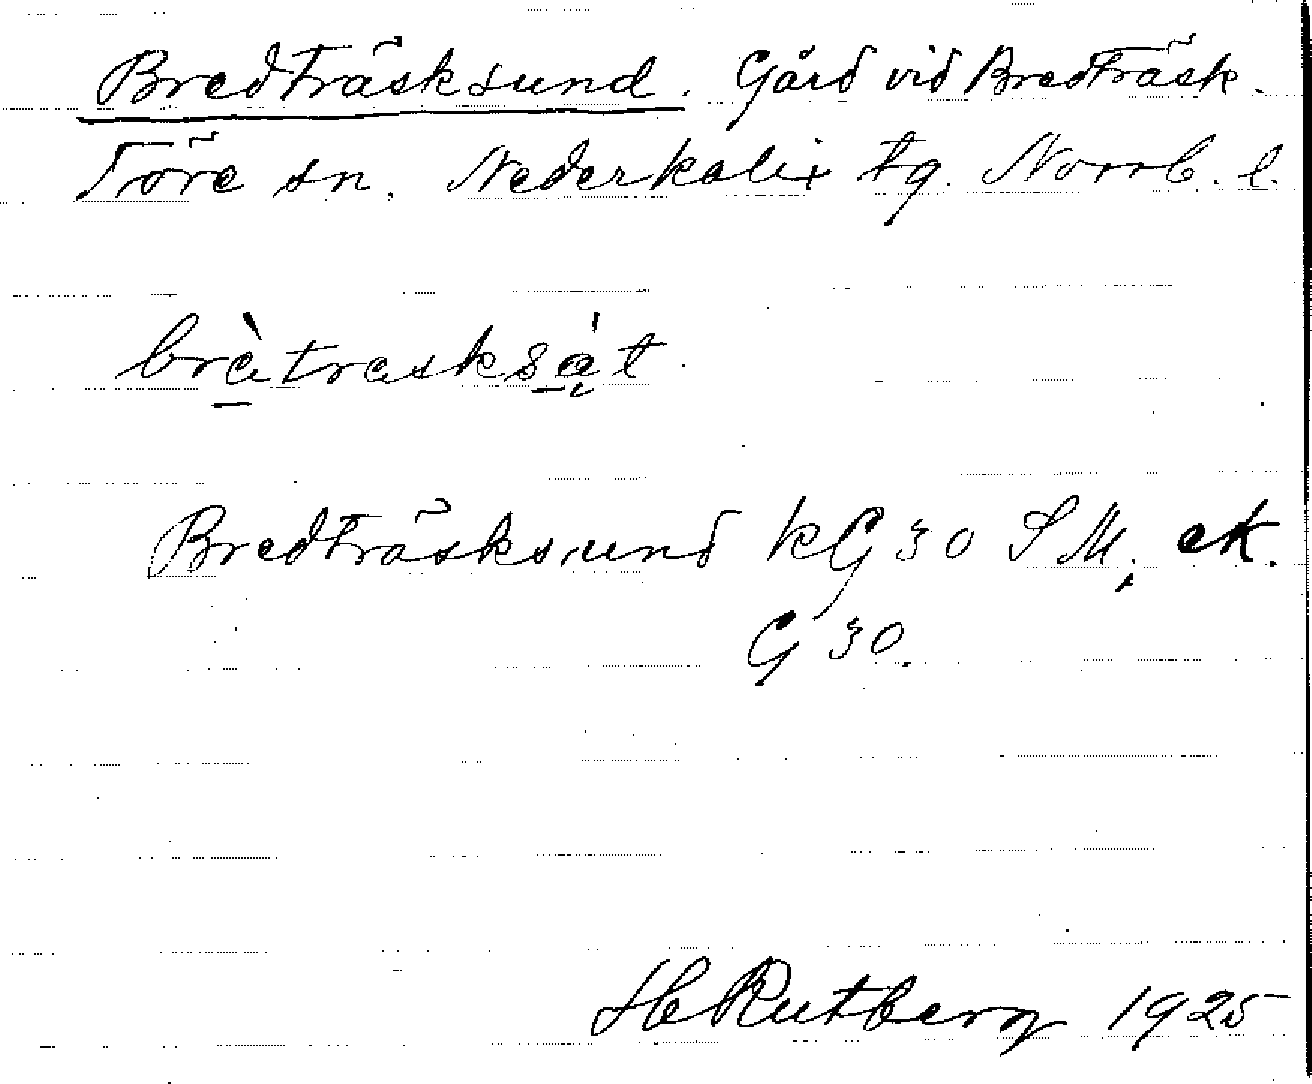 Bredträsksund. Gård vid Bredträsk.
Töre sn. Nederkalix tg. Norrb. l.
Bredträsksund kG 30 S M; ek.
G 30.
H Rutberg 1925